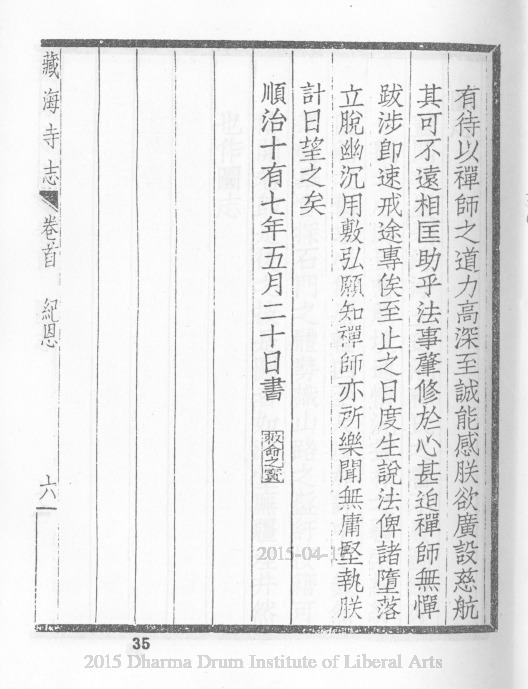 有待以禪師之道力高深至誠能感朕欲廣設慈航
其可不遠相匡助乎法事肇修於心甚迫禪師無憚
跋涉卽速戒途專俟至止之日度生說法俾諸墮落
立脫幽沉用敷弘願知禪師亦所樂聞無庸堅執朕
計日望之矣
順治十有七年五月二十日書
敬命之寶
藏海寺志 卷首 紀恩 六
2015-04-1
35
2015 Dharma Drum Institute of Liberal Arts